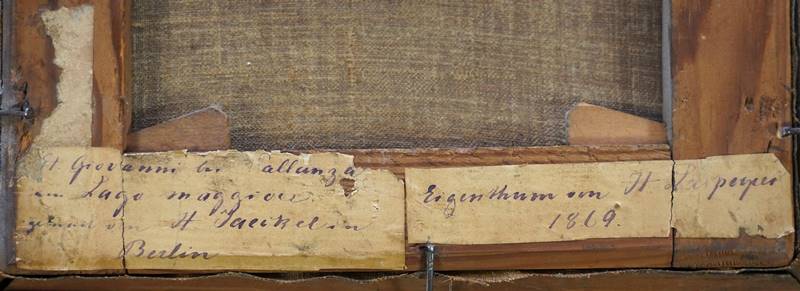 St Giovanni bei Pallanza
am Lago maggiore.
gemalt von H Jaeckel in
Berlin
Eigenthum von H
1869.